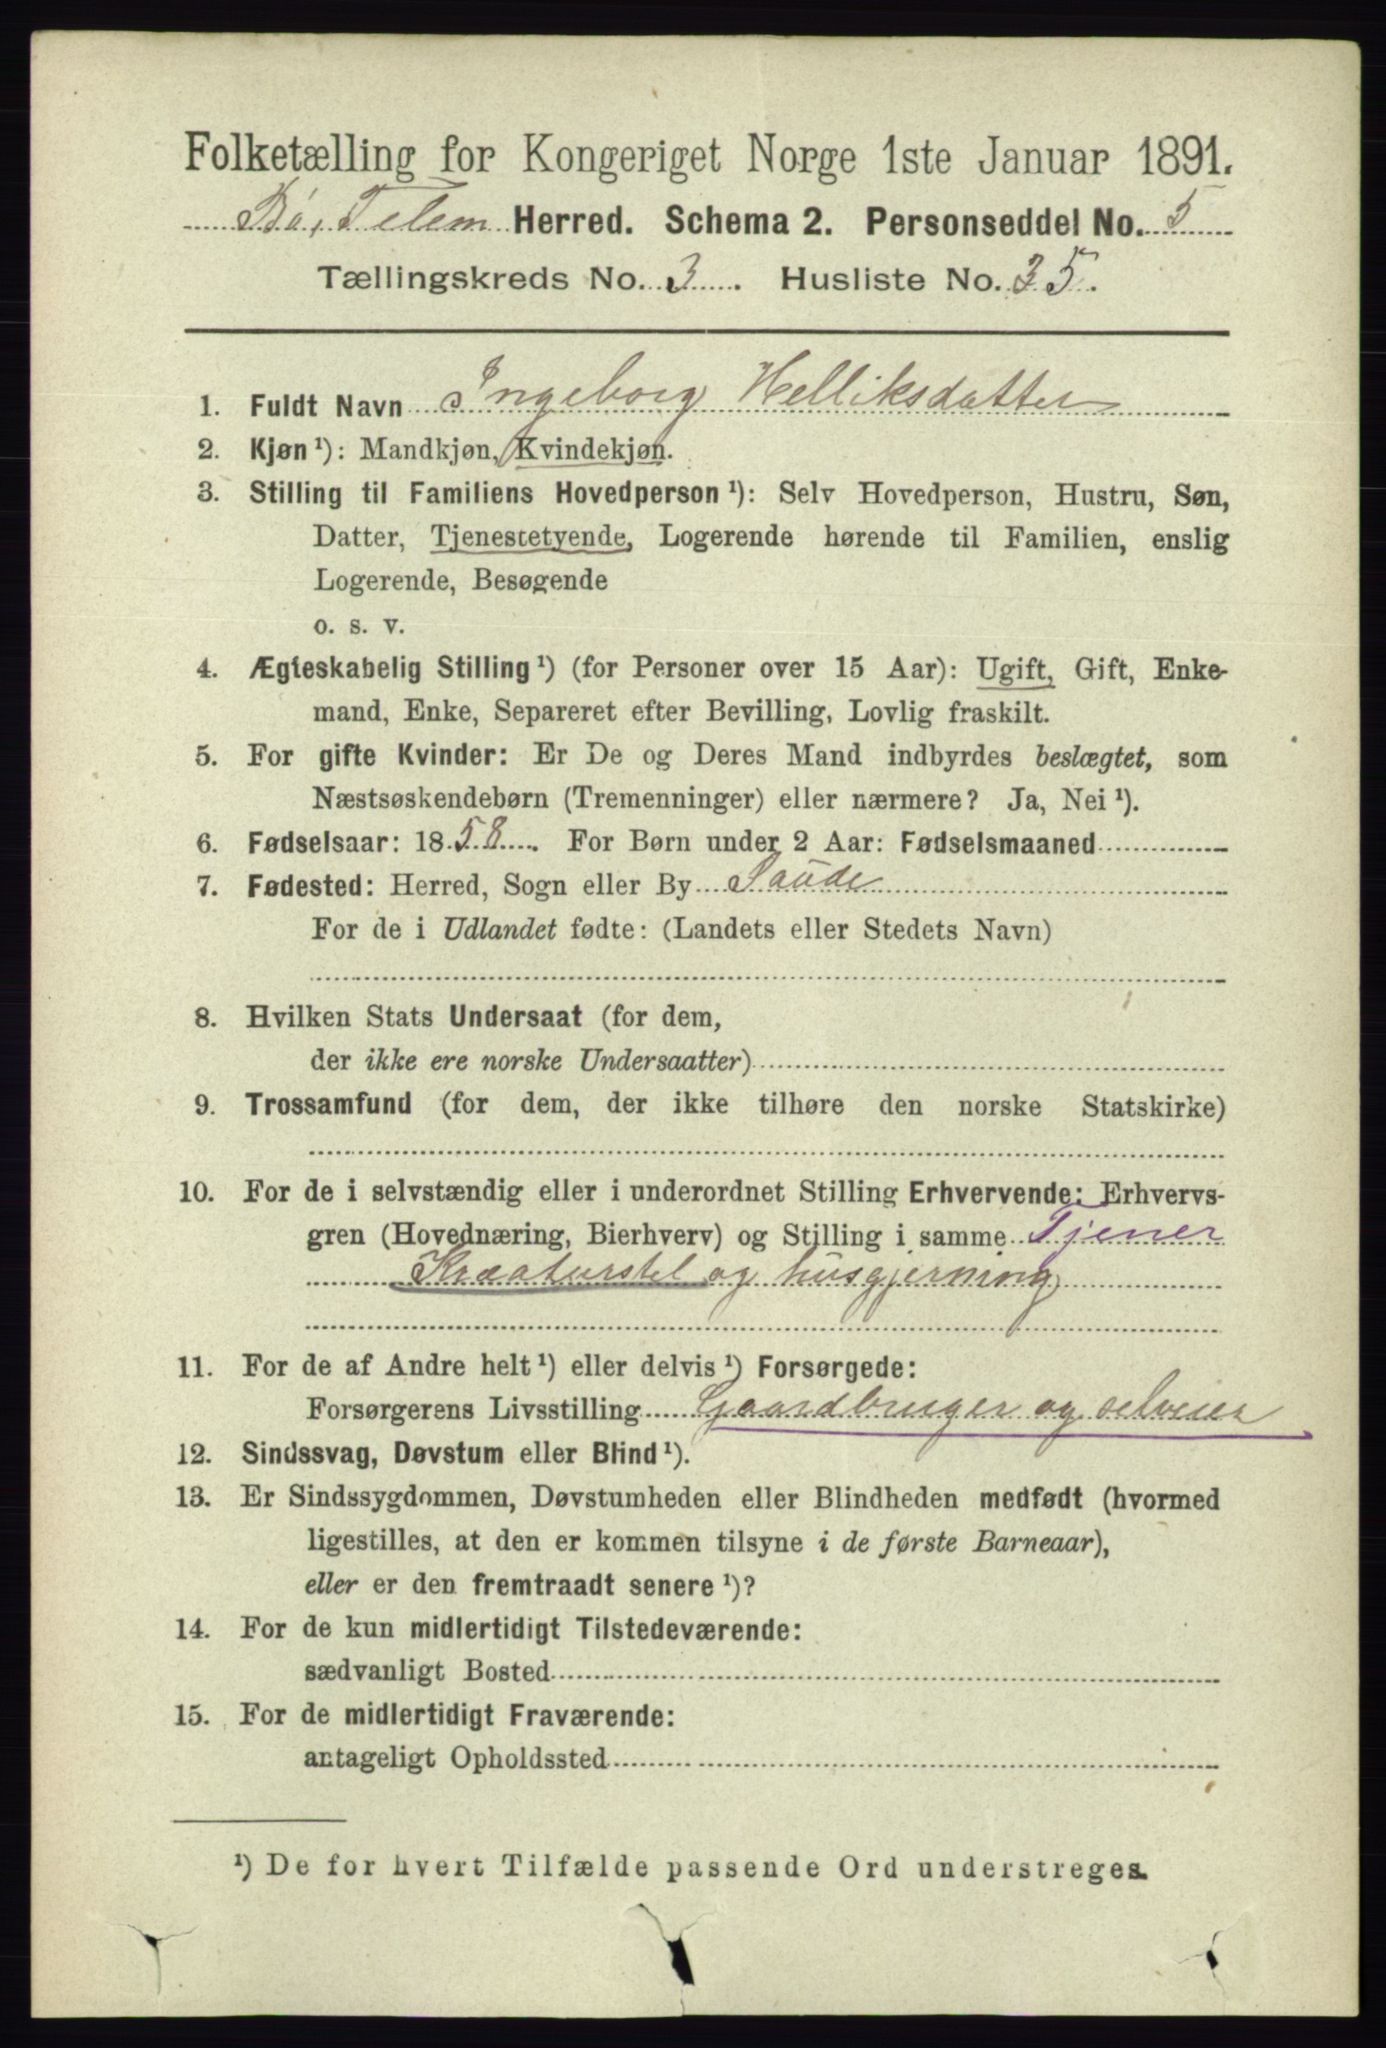 Folketælling for Kongeriget Norge 1ste Januar 1891.
Bø, Telem Herred. Schema 2. Personseddel No. 5
Tællingskreds No. 3. Husliste No. 35.
1. Fuldt Navn Ingeborg Helliksdatter
2. Kjøn ¹): Mandkjøn, Kvindekjøn.
3. Stilling til Familiens Hovedperson ¹): Selv Hovedperson, Hustru, Søn,
Datter, Tjenestetyende, Logerende hørende til Familien, enslig
Logerende, Besøgende
o. s. v.
4. Ægteskabelig Stilling ¹) (for Personer over 15 Aar): Ugift, Gift, Enke-
mand, Enke, Separeret efter Bevilling, Lovlig fraskilt.
5. For gifte Kvinder: Er De og Deres Mand indbyrdes beslægtet, som
Næstsøskendebørn (Tremenninger) eller nærmere? Ja, Nei ¹).
6. Fødselsaar: 1858. For Børn under 2 Aar: Fødselsmaaned
7. Fødested: Herred, Sogn eller By Saude
For de i Udlandet fødte: (Landets eller Stedets Navn)
8. Hvilken Stats Undersaat (for dem,
der ikke ere norske Undersaatter)
9. Trossamfund (for dem, der ikke tilhøre den norske Statskirke)
10. For de i selvstændig eller i underordnet Stilling Erhvervende: Erhvervs-
gren (Hovednæring, Bierhverv) og Stilling i samme Tjener
Kreaturstel og husgjerning
11. For de af Andre helt ¹) eller delvis ¹) Forsørgede:
Forsørgerens Livsstilling Gaardbruger og selveier
12. Sindssvag, Døvstum eller Blind ¹).
13. Er Sindssygdommen, Døvstumheden eller Blindheden medfødt (hvormed
ligestilles, at den er kommen tilsyne i de første Barneaar),
eller er den fremtraadt senere ¹)?
14. For de kun midlertidigt Tilstedeværende:
sædvanligt Bosted
15. For de midlertidigt Fraværende:
antageligt Opholdssted
¹) De for hvert Tilfælde passende Ord understreges.